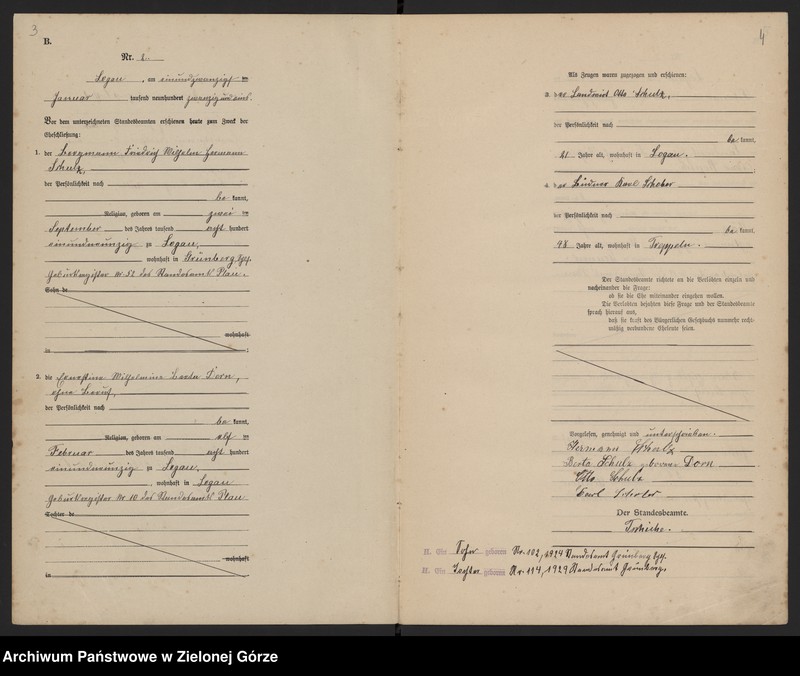 3
B.
Nr. 2.
Logau, am einundzwanzigsten
Januar tausend neunhundert zwanzig und eins.
Vor dem unterzeichneten Standesbeamten erschienen heute zum Zweck der
Eheschließung:
1. der Bergmann Friedrich Wilhelm Hermann
Schulz,
der Persönlichkeit nach
be kannt,
Religion, geboren am zwei ten
September des Jahres tausend acht hundert
einundneunzig zu Logau,
wohnhaft in Grünberg
Geburtsregister Nr 52 des Standesamts Plau.
Sohn de
wohnhaft
in
2. die Ernestine Wilhelmine Berta Dorn,
ohne Beruf,
der Persönlichkeit nach
be kannt,
Religion, geboren am elf ten
Februar des Jahres tausend acht hundert
einundneunzig zu Logau,
wohnhaft in Logau
Geburtsregister Nr 10 des Standesamts Plau
Tochter de
wohnhaft
in
4
Als Zeugen waren zugezogen und erschienen:
3. der Landwirt Otto Schulz,
der Persönlichkeit nach
be kannt,
Jahre alt, wohnhaft in Logau.
4. der Karl
der Persönlichkeit nach
be kannt,
48 Jahre alt, wohnhaft in Treppeln.
Der Standesbeamte richtete an die Verlobten einzeln und
nacheinander die Frage:
ob sie die Ehe miteinander eingehen wollen.
Die Verlobten bejahten diese Frage und der Standesbeamte
sprach hierauf aus,
daß sie kraft des Bürgerlichen Gesetzbuchs nunmehr recht-
mäßig verbundene Eheleute seien.
Vorgelesen, genehmigt und unterschrieben.
Hermann Schulz
Berta Schulz geborene Dorn
Otto Schulz
Karl
Der Standesbeamte.
II. Ein Sohn geboren Nr. 102, 1924 Standesamt Grünberg
II. Ein Tochter geboren Nr. 114, 1929 Standesamt Grünberg.
Archiwum Państwowe w Zielonej Górze